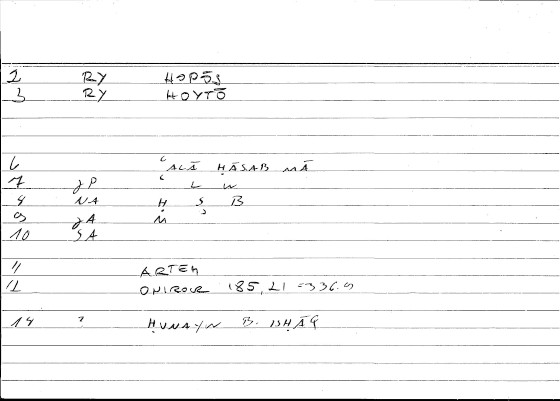 2 RY HOPŌS
3 RY HOYTŌ
6 ʿALĀ ḤASAB MĀ
7 ʿ L W
8 NA Ḥ S B
9 M
10 SA
11 ARTEM
12 ONIROCR 185,21 = 336.9
14 ? ḤUNAYN B. ISḤĀQ